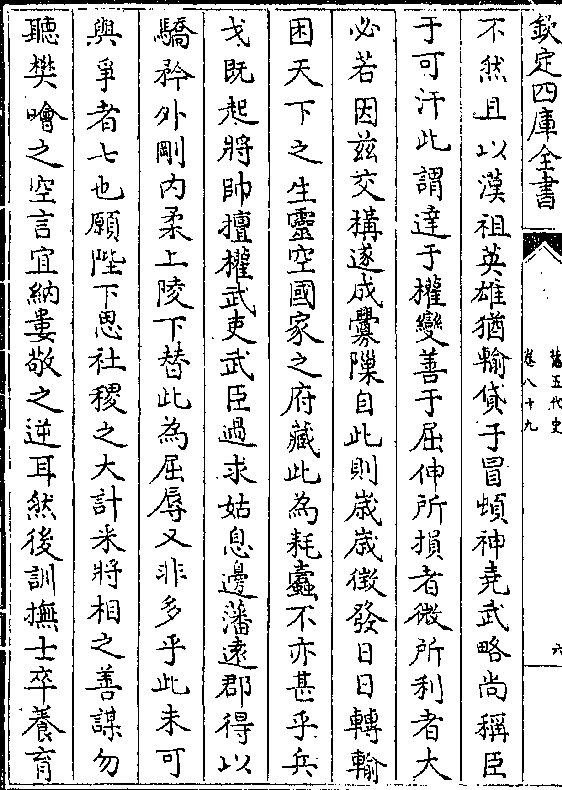 欽定四庫全書
舊五代史
卷八十九
六
不然且以漢祖英雄猶輸貨于冒頓神堯武略尚稱臣
于可汗此謂達于權變善于屈伸所損者微所利者大
必若因茲交構遂成釁隟自此則歲歲徵發日日轉輸
困天下之生靈空國家之府藏此為耗蠹不亦甚乎兵
戈既起將帥擅權武吏武臣過求姑息邊藩遠郡得以
驕矜外剛內柔上陵下替此為屈辱又非多乎此未可
與爭者七也願陛下思社稷之大計采將相之善謀勿
聽樊噲之空言宜納婁敬之逆耳然後訓撫士卒養育